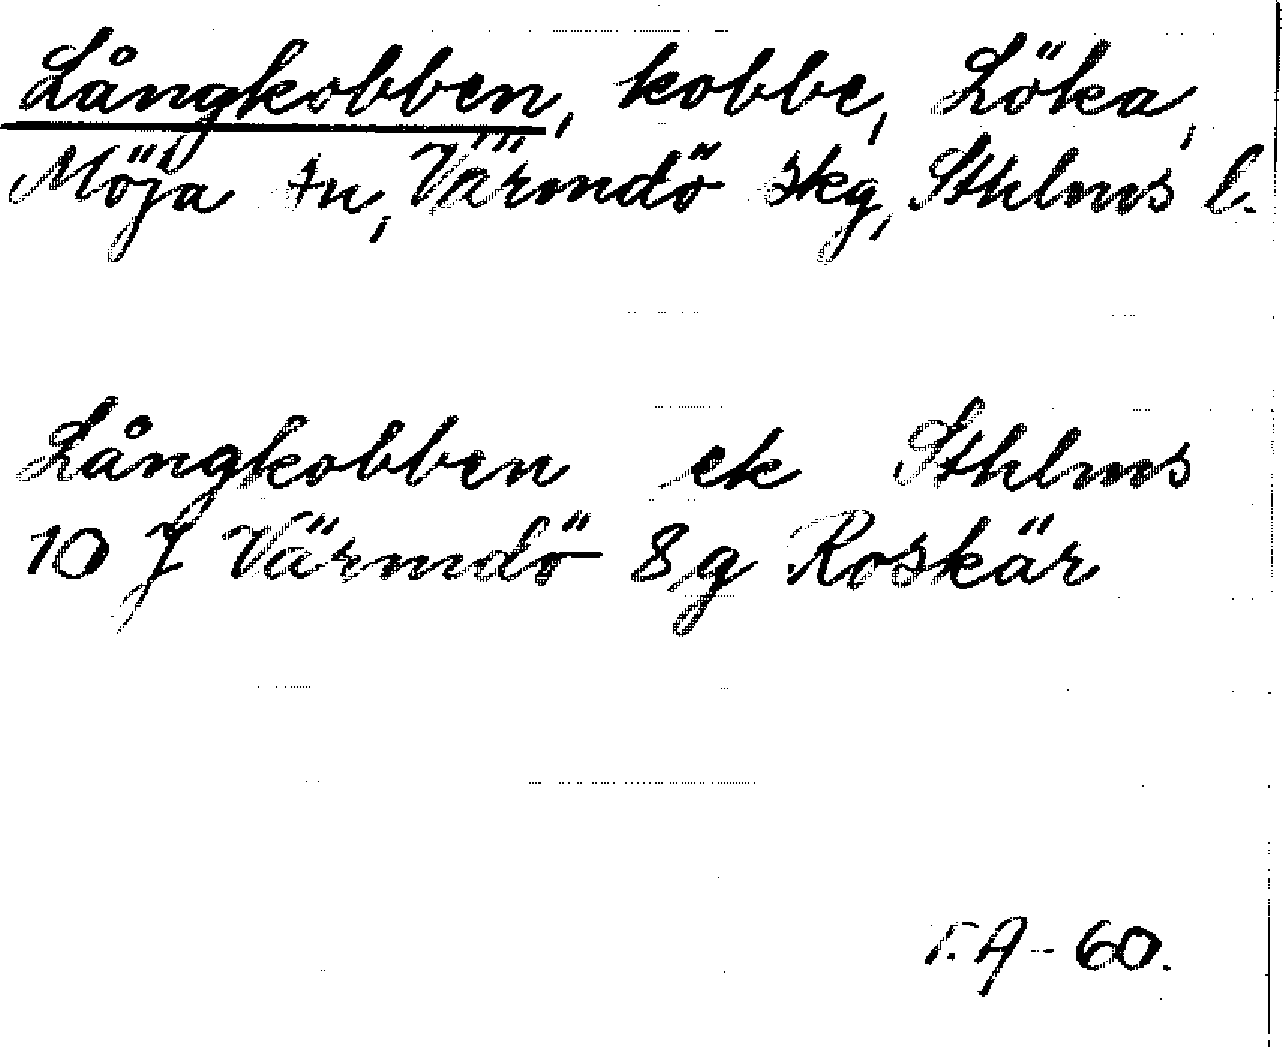 Långkobben, kobbe, Löka,
Möja sn, Värmdö skg, Sthlms l.
Långkobben ek Sthlms
10 J Värmdö 8 g Roskär
T. A - 60.